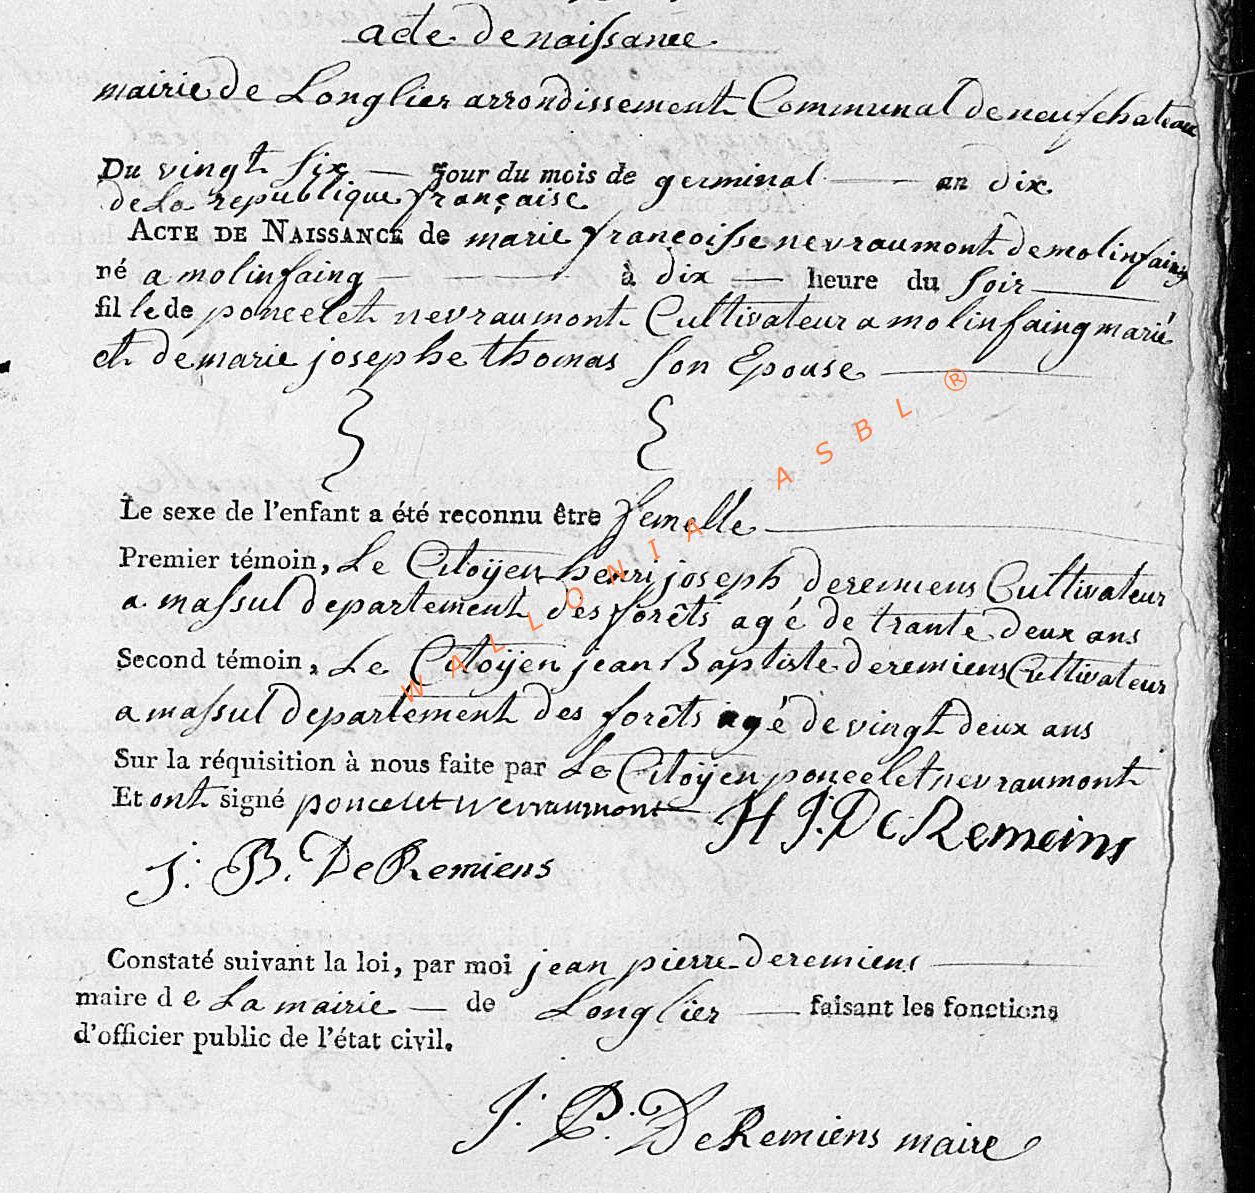 acte de naissance
mairie de Longlier arrondissement Communal de neufchateau
Du vingt six jour du mois de germinal an dix
de la republique française
ACTE DE NAISSANCE de marie françoisse nevraumont de molinfaing
né a molinfaing à dix heure du soir
fil le de poncelet nevraumont Cultivateur a molinfaing marié
et de marie josephe thomas son Epouse
Le sexe de l'enfant a été reconnu être femelle
Premier témoin, Le Citoÿen henri joseph deremiens Cultivateur
a massul departement des forêts agé de trante deux ans
Second témoin, Le Citoÿen jean Baptiste deremiens Cultivateur
a massul departement des forêts agé de vingt deux ans
Sur la réquisition à nous faite par Le Citoÿen poncelet nevraumont
Et ont signé poncelet nevraumont H J: De Remeins
j: B. De Remiens
Constaté suivant la loi, par moi jean pierre deremiens
maire de La mairie de Longlier faisant les fonctions
d'officier public de l'état civil.
J: P: De Remiens maire
WALLONIA ASBL ®